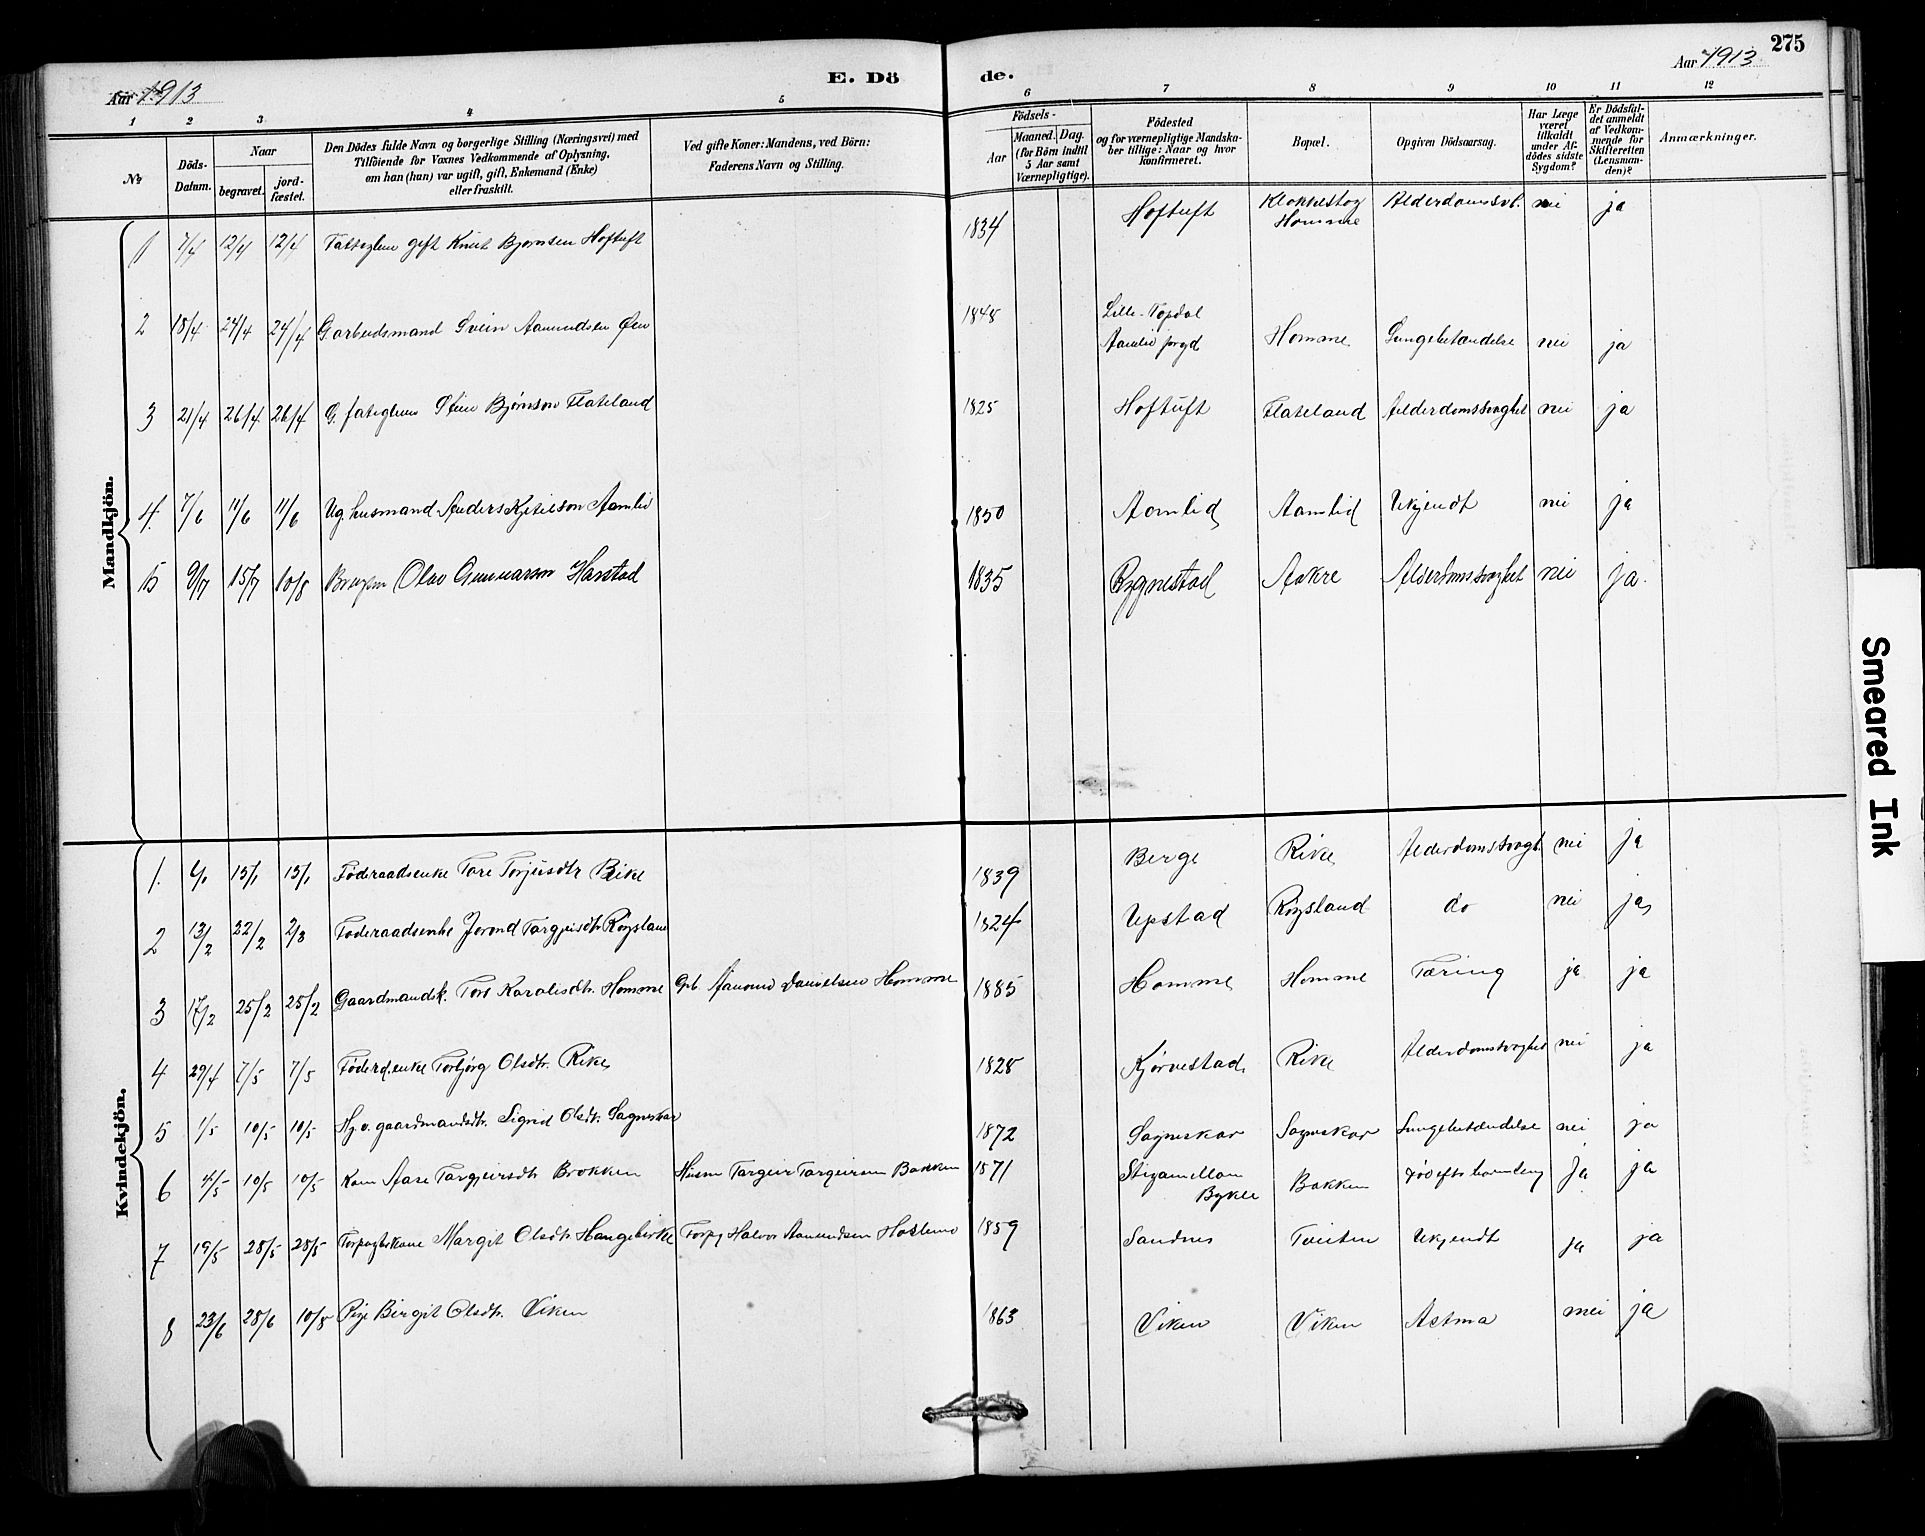 275
Aar 1913
E. Dö
de.
Aar 1913
1 2 3 4 5 6 7 8 9 10 11 12
№
Döds-Datum.
Naar
begravet.
jord-fæstet.
Den Dödes fulde Navn og borgerlige Stilling (Næringsvei) med
Tilföiende for Voxnes Vedkommende af Oplysning,
om han (hun) var ugift, gift, Enkemand (Enke)
eller fraskilt.
Ved gifte Koner: Mandens, ved Börn:
Faderens Navn og Stilling.
Födsels-
Aar
Maaned. Dag.
(for Börn indtil
5 Aar samt
Værnepligtige).
Födested
og for værnepligtige Mandska-
ber tillige: Naar og hvor
konfirmeret.
Bopæl.
Opgiven Dödsaarsag.
Har Læge
været
tilkaldt
under Af-
dödes sidste
Sygdom?
Er Dödsfal-
det anmeldt
af Vedkom-
mende for
Skifteretten
(Lensman-
den)?
Anmærkninger.
Mandkjön.
1 7/4 12/4 12/4 gift Knut Bjørnsen Hoftuft 1834 Hoftuft Homme Alderdomssv. nei ja
2 18/4 24/4 24/4 G arbeidsmand Svein Aamundsen Øen 1848 Lille-Topdal Homme Lungebetændelse nei ja
3 21/4 26/4 26/4 G. Bjørnson Flateland 1825 Hoftuft Flateland Alderdomssvaghet nei ja
4. 7/6 11/6 11/6 Ug. husmand Anders Kjetilson Aamlid 1850 Aamlid Aamlid Ukjendt nei ja
5 9/7 15/7 10/8 Olav Gunnarson Harstad 1835 Bygnestad Aakre Alderdomssvaghet nei ja.
Kvindekjön.
1. 15/1 15/1 Føderaadsenke Tore Torjusdtr Rike 1839 Berge Rike Alderdomssvagh. nei ja
2 13/2 22/2 2/3 Føderaadsenke Jorond Targjeisdtr Røysland 1824 Upstad Røysland do nei ja
3 17/2 25/2 25/2 Gaardmandsk. Homme Gb. Aanund Danielsen Homme 1885 Homme Homme Tæring ja ja
4 29/4 7/5 7/5 Føderd.enke Torbjørg Olsdtr. Rike 1828 Kjørvestad Rike Alderdomssvaghet nei ja
5 1/5 10/5 10/5 gaardmandsdtr. Sigrid Olsdtr. Sagneskar 1872 Sagneskar Sagneskar Lungebetændelse nei ja
6 4/5 10/5 10/5 Kone Aase Targjeirsdtr Brokken Husm Targeir Targeirsen Bakken 1871 Bykle Bakken ja ja
7 19/5 28/5 28/5 Margit Olsdtr Halvor Aanundsen 1859 Sandnes Tveiten Ukjendt ja ja
8 23/6 28/6 10/8 Pige Birgit Olsdtr. Viken 1863 Viken Viken Astma nei ja
Smeared Ink